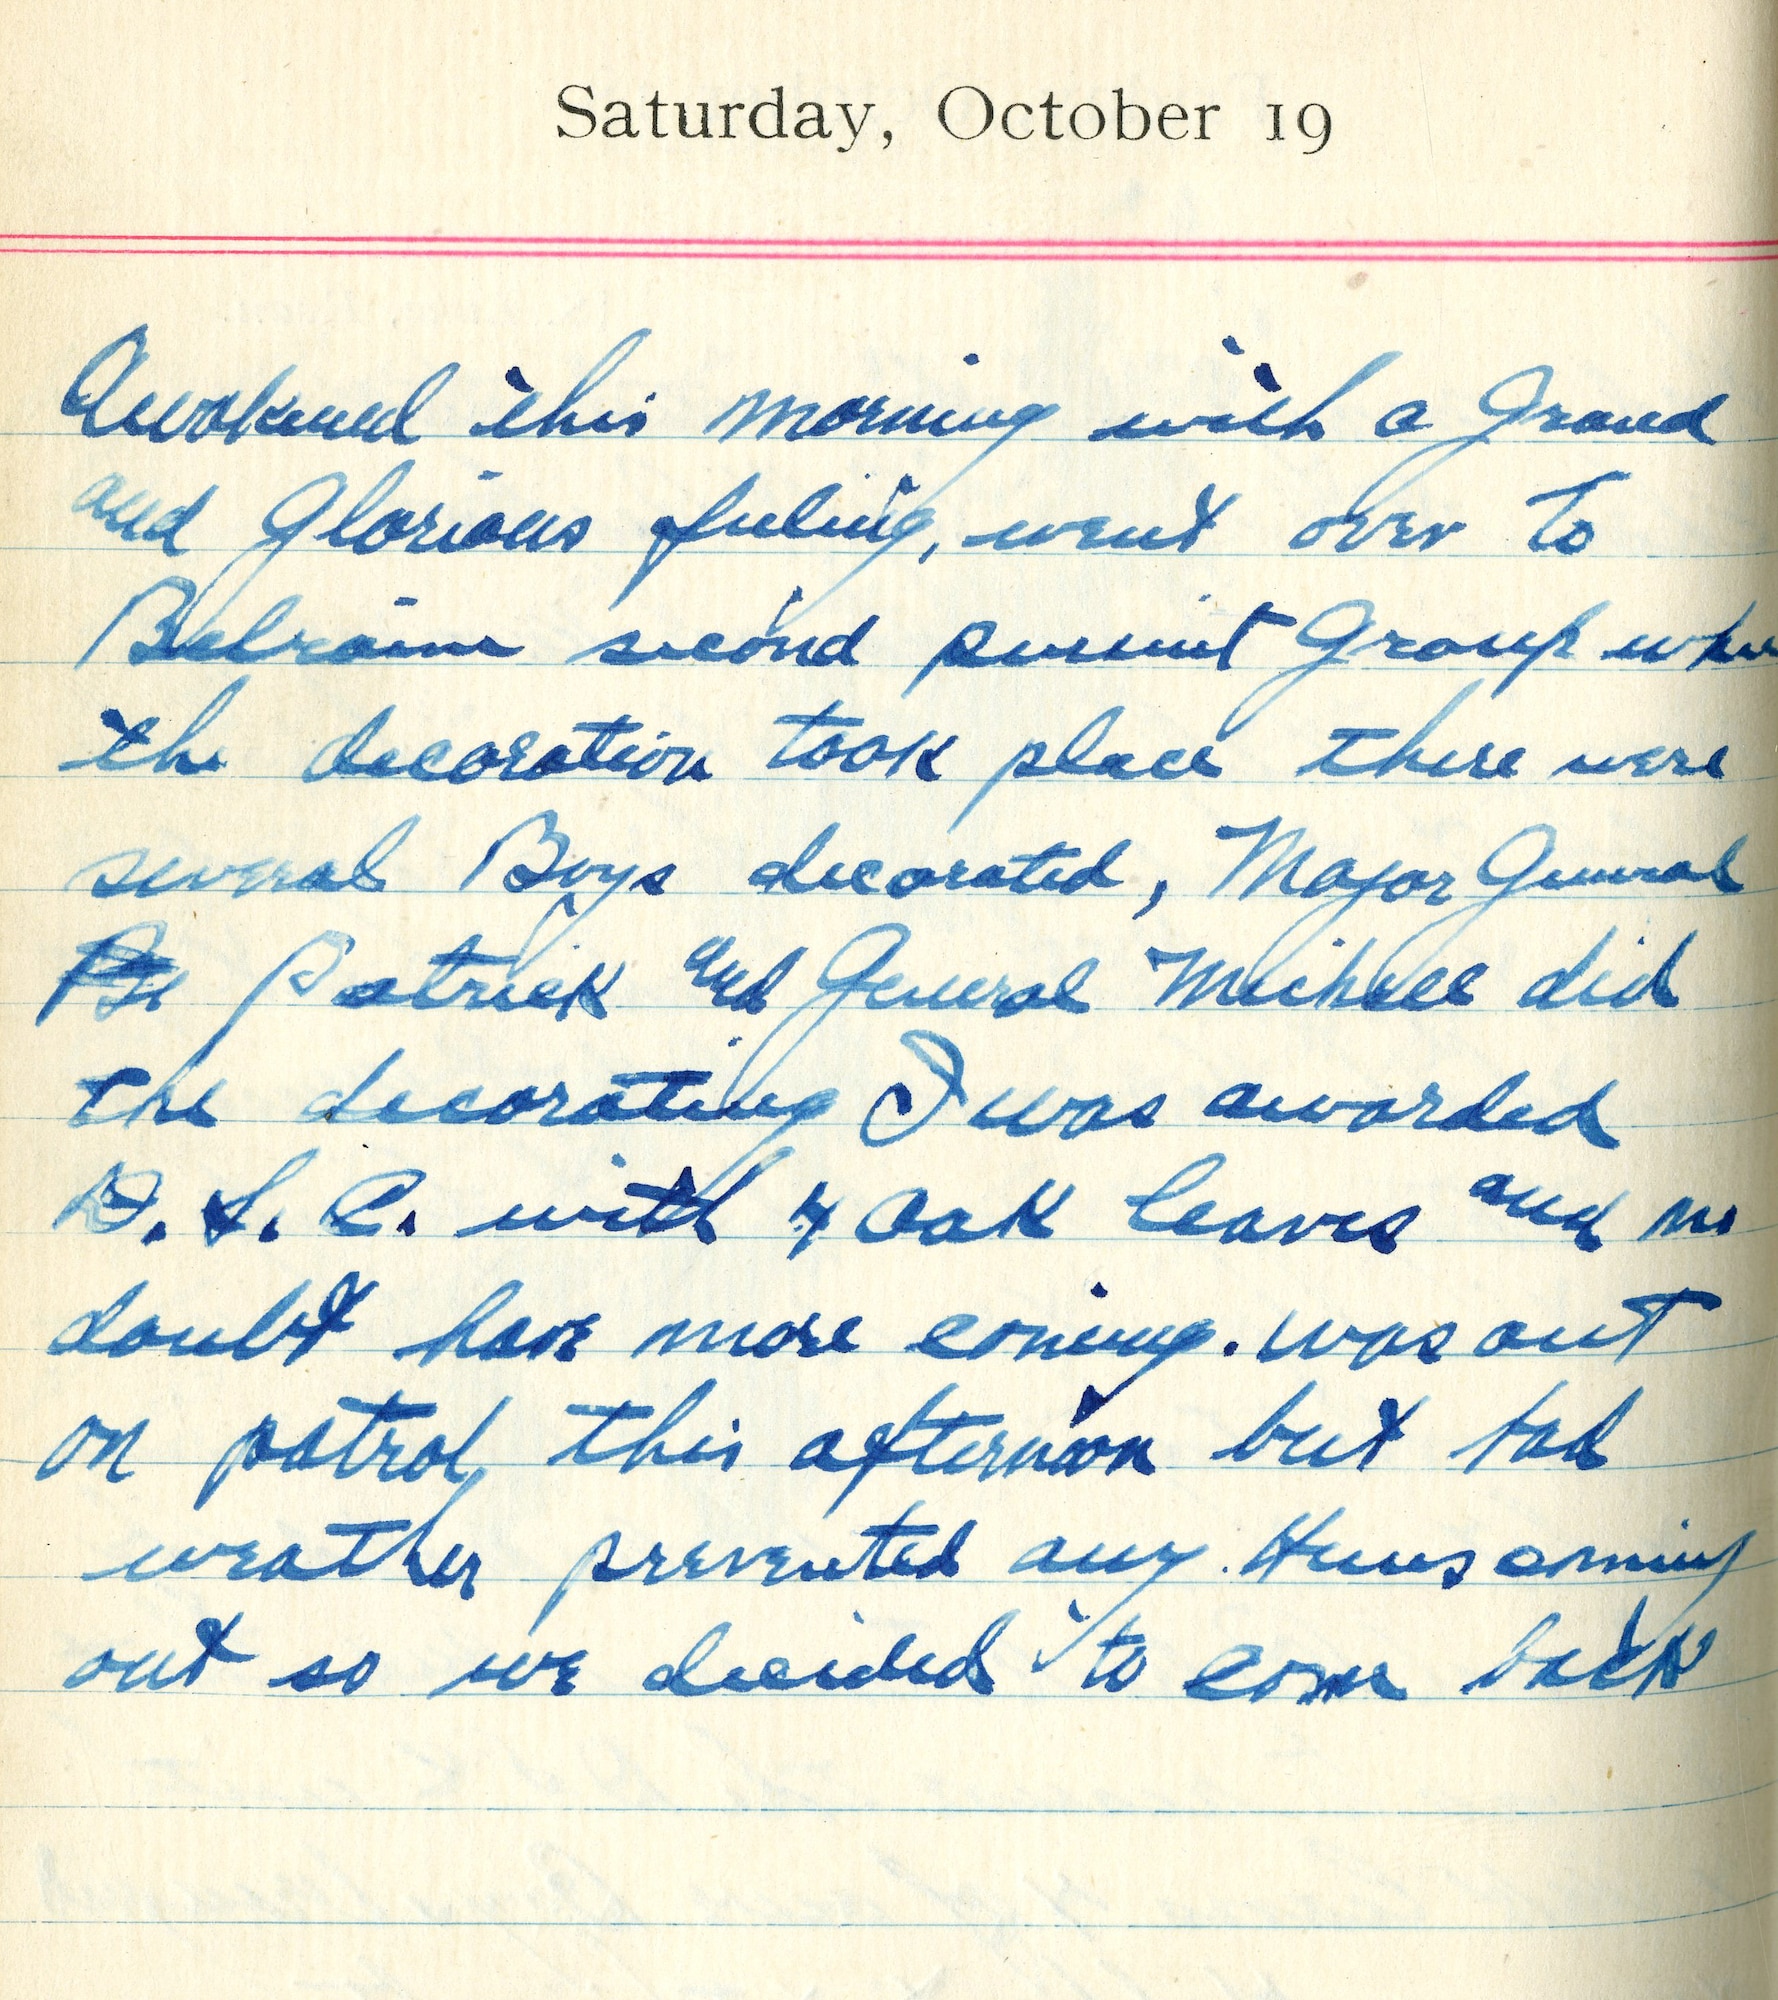 Saturday, October 19
Awakened this morning with a Grand
and Glorious feeling, went over to
Belraine second pursuit Group where
the decoration took place there were
several Boys decorated, Major General
Patrick and General Michell did
the decorating I was awarded
D. S. C. with 4 oak leaves and no
doubt have more coming. was out
on patrol this afternoon but bad
weather prevented any Huns coming
out so we decided to come back